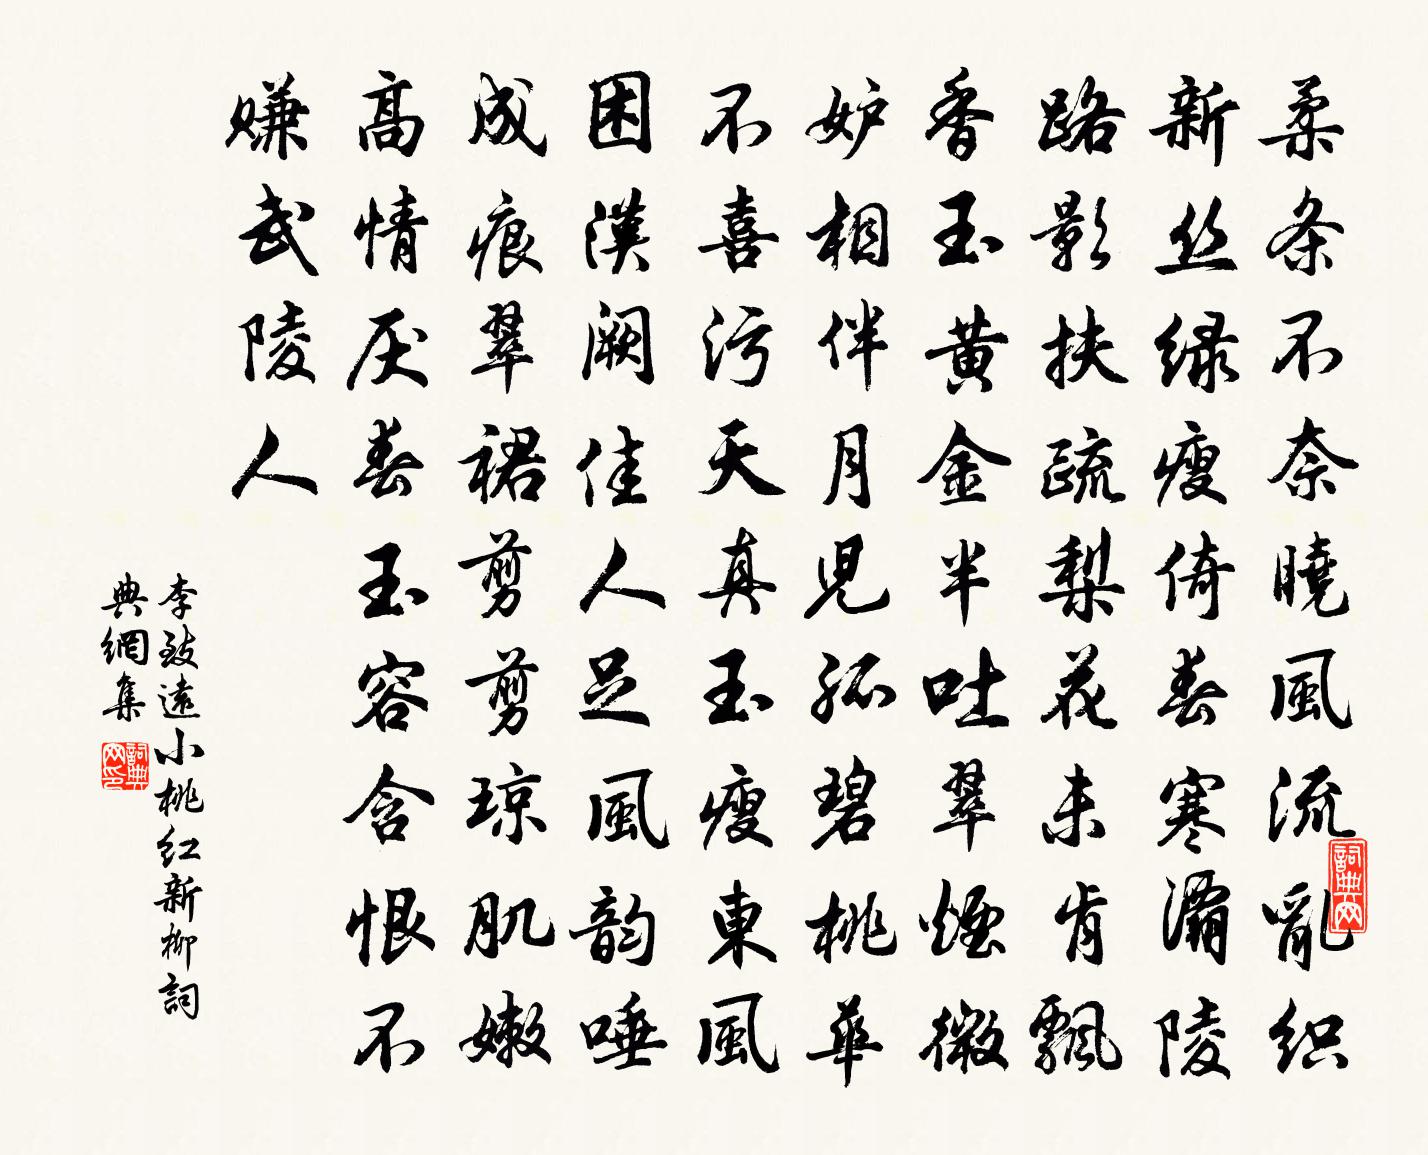 柔条不奈曉風流亂织
新丝绿瘦倚春寒灞陵
路影扶疏梨花未肯飄
香玉黄金半吐翠煙微
妒相伴月児孤碧桃華
不喜污天真玉瘦東風
困漢阙佳人足風韵唾
成痕翠裙剪剪琼肌嫩
高情厌春玉容含恨不
嫌武陵人
李致遠小桃红新柳詞
典網集
詞典网
詞典网印